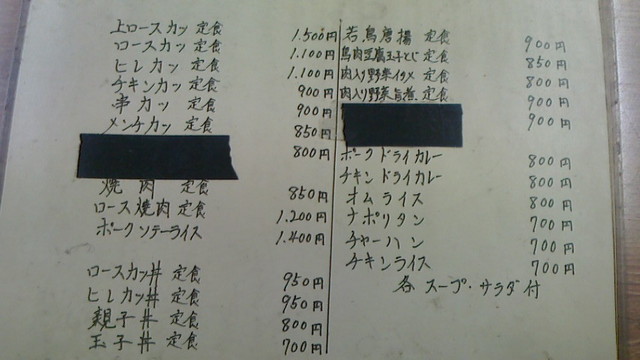 上ロースカツ 定食 1.500円
ロースカツ 定食 1.100円
ヒレカツ 定食 1.100円
チキンカツ 定食 900円
串カツ 定食 900円
メンチカツ 定食 850円
800円
焼肉 定食 850円
ロース焼肉 定食 1.200円
ポークソテーライス 1.400円
ロースカツ丼 定食 950円
ヒレカツ丼 定食 950円
親子丼 定食 800円
玉子丼 定食 700円
若鳥唐揚 定食 900円
鳥肉豆腐玉子とじ 定食 850円
肉入り野菜イタメ 定食 800円
肉入り野菜旨煮 定食 900円
900円
ポークドライカレー 800円
チキンドライカレー 800円
オムライス 800円
ナポリタン 700円
チャーハン 700円
チキンライス 700円
各 スープ・サラダ付